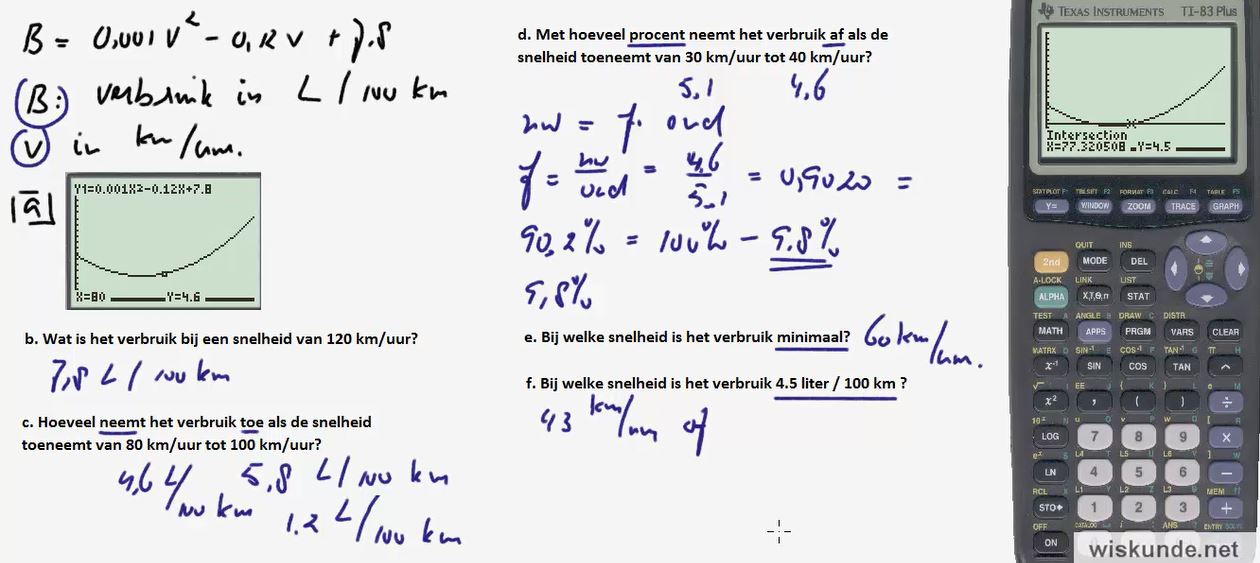 B = 0,001 V² - 0,12 V + 7.8
(B:) verbruik in L / 100 km
V in km/uur.
a
Y1=0.001X2-0.12X+7.8
X=80 Y=4.6
b. Wat is het verbruik bij een snelheid van 120 km/uur?
7,8 L / 100 km
c. Hoeveel neemt het verbruik toe als de snelheid
toeneemt van 80 km/uur tot 100 km/uur?
4,6 L/100 km 5,8 L/100 km
1.2 L/100 km
d. Met hoeveel procent neemt het verbruik af als de
snelheid toeneemt van 30 km/uur tot 40 km/uur?
5,1 4,6
nw = f. oud
f = nw/oud = 4,6/5.1 = 0,9020 =
90,2% = 100% - 9.8%
9,8%
e. Bij welke snelheid is het verbruik minimaal? 60 km/uur.
f. Bij welke snelheid is het verbruik 4.5 liter / 100 km ?
43 km/uur of
TEXAS INSTRUMENTS TI-83 Plus
Intersection
X=77.320508 Y=4.5
STAT PLOT F1 TBLSET F2 FORMAT F3 CALC F4 TABLE F5
Y= WINDOW ZOOM TRACE GRAPH
QUIT INS
2nd MODE DEL
A-LOCK LINK LIST
ALPHA X,T,Θ,n STAT
TEST A ANGLE B DRAW C DISTR
MATH APPS PRGM VARS CLEAR
MATRX D SIN⁻¹ E COS⁻¹ F TAN⁻¹ G π H
x⁻¹ SIN COS TAN ^
√ I EE J { K } L e M
x² , ( ) ÷
10ˣ N u O v P w Q [ R
LOG 7 8 9 ×
eˣ S L4 T L5 U L6 V ] W
LN 4 5 6 −
RCL X L1 Y L2 Z L3 θ MEM "
STO▸ 1 2 3 +
OFF CATALOG i ANS ? ENTRY SOLVE
ON
wiskunde.net